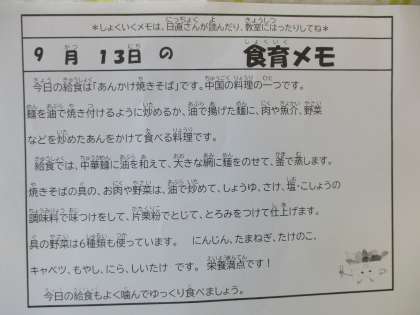 ＊しょくいくメモは、日直さんが読んだり、教室にはったりしてね＊
9月13日の 食育メモ
今日の給食は「あんかけ焼きそば」です。中国の料理の一つです。
麺を油で焼き付けるように炒めるか、油で揚げた麺に、肉や魚介、野菜
などを炒めたあんをかけて食べる料理です。
給食では、中華麺に油を和えて、大きな網に麺をのせて、釜で蒸します。
焼きそばの具の、お肉や野菜は、油で炒めて、しょうゆ、さけ、塩・こしょうの
調味料で味つけをして、片栗粉でとじて、とろみをつけて仕上げます。
具の野菜は6種類も使っています。 にんじん、たまねぎ、たけのこ、
キャベツ、もやし、にら、しいたけ です。 栄養満点です！
今日の給食もよく噛んでゆっくり食べましょう。